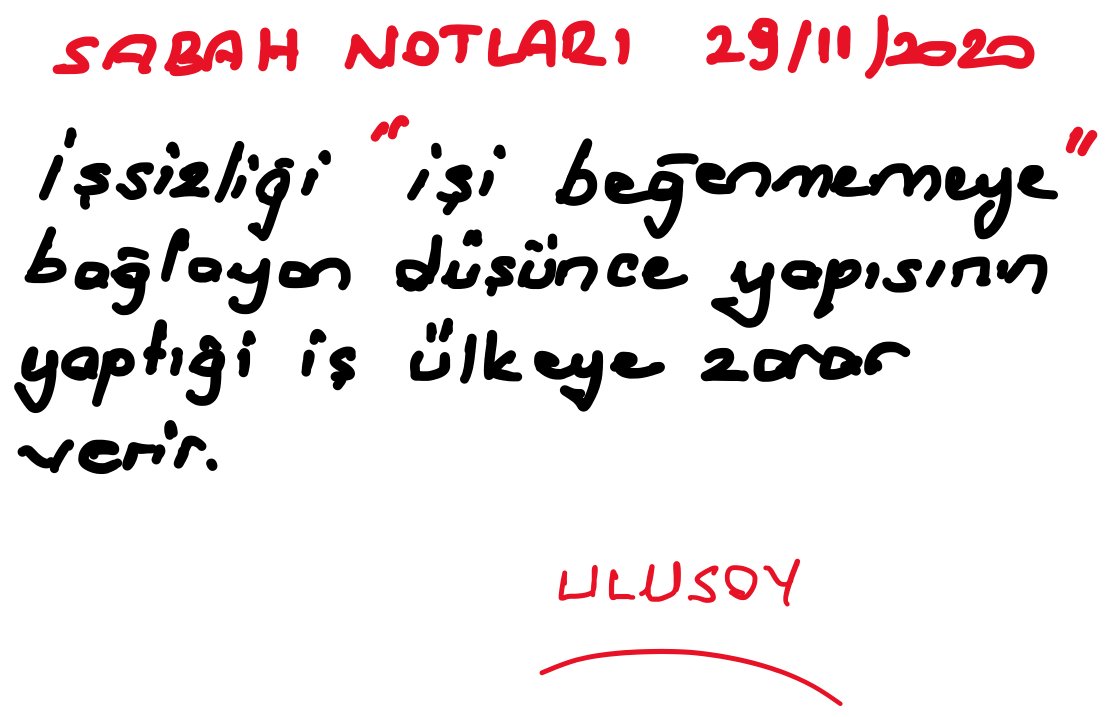 SABAH NOTLARI 29/11/2020
işsizliği "işi beğenmemeye"
bağlayan düşünce yapısının
yaptığı iş ülkeye zarar
verir.
ULUSOY